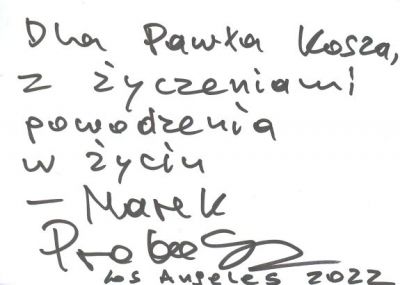 Dla Pawła Kosza,
z życzeniami
powodzenia
w życiu
- Marek
Los Angeles 2022